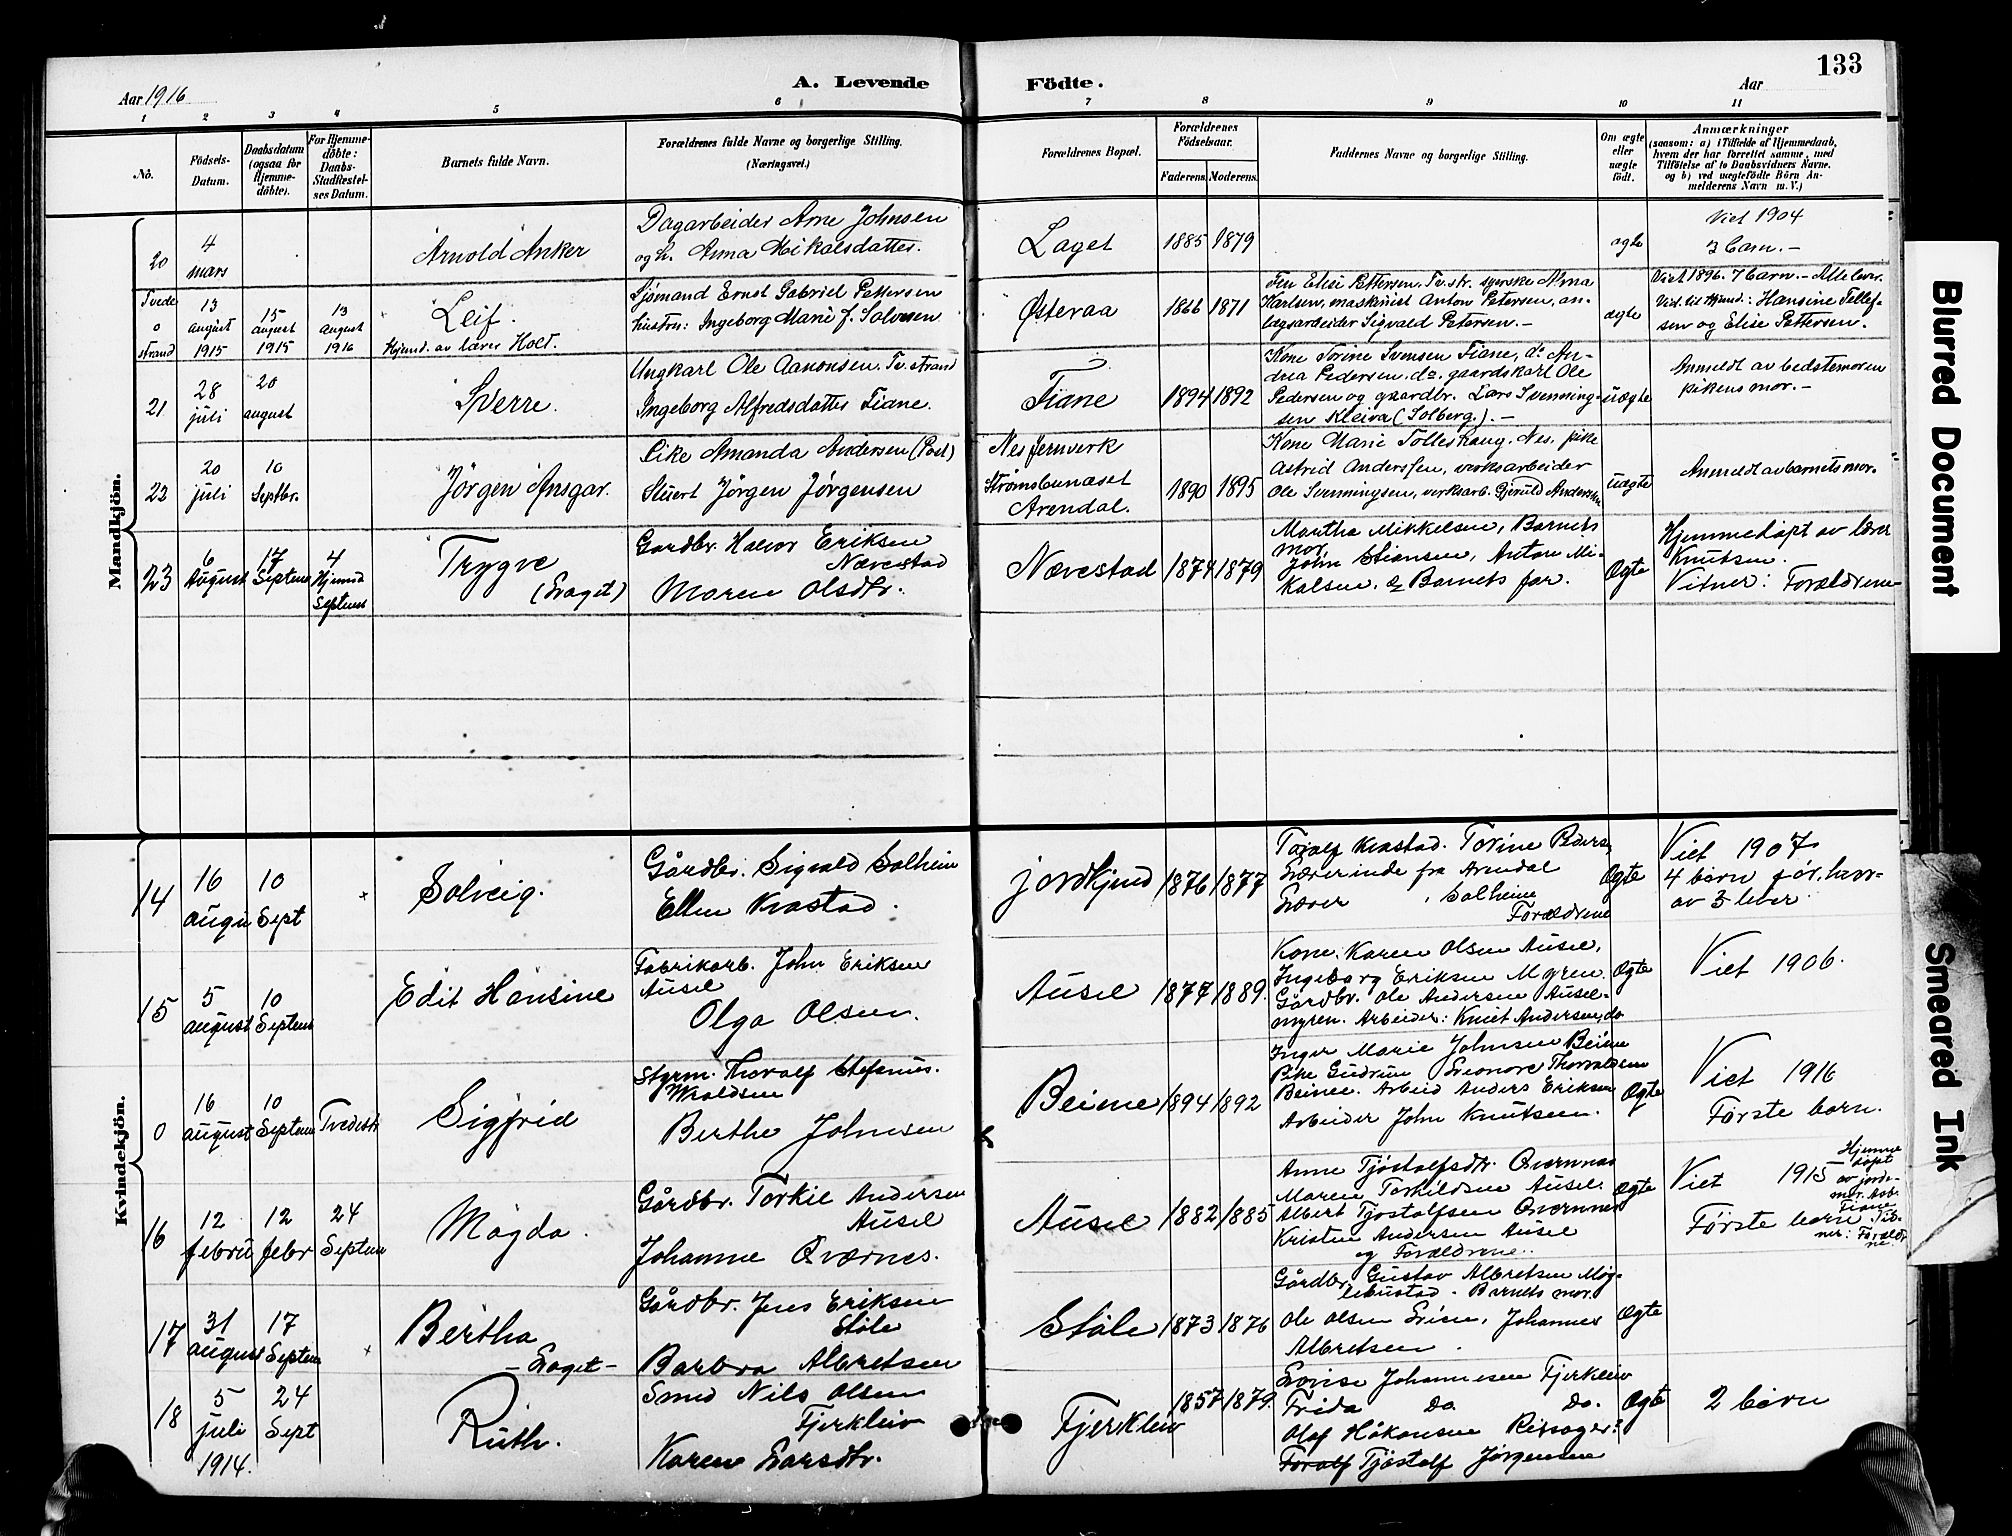 133
Aar 1916
A. Levende
Födte.
Aar
1 2 3 4 5 6 7 8 9 10 11
No.
Födsels-
Datum.
Daabsdatum
(ogsaa for
Hjemme-
döbte).
For Hjemme-
döbte:
Daabs-
Stadfæstel-
ses Datum.
Barnets fulde Navn.
Forældrenes fulde Navne og borgerlige Stilling.
(Næringsvei.)
Forældrenes Bopæl.
Forældrenes
Födselsaar.
Faderens. Moderens.
Faddernes Navne og borgerlige Stilling.
Om ægte
eller
uægte
födt.
Anmærkninger
(saasom: a) i Tilfælde af Hjemmedaab,
hvem der har forrettet samme, med
Tilföielse af to Daabsvidners Navne,
og b) ved uægtefödte Börn An-
melderens Navn m. V.)
Mandkjön.
20
4
mars
Arnold Anker
Dagarbeider Arne Johnsen
og h. Anna Mikalsdatter.
Laget
1885 1879
ægte
Viet 1904
3 barn.-
Tvede
o
strand
13
august
1915
15
august
1915
13
august
1916
Leif.
Hjemd. av lærer Holt.
Sjømand Ernst Gabriel Pettersen
hustru: Ingeborg Marie f. Salvesen
Østeraa
1866 1871
Fru Elise Pettersen, Tv.str. syerske Alma
Karlsen, maskinist Anton Petersen, an-
lægsarbeider Sigvald Petersen.-
ægte
Viet 1896. 7 barn.- Alle lever.
Vid. til Hjemd.: Hansine Tellef-
sen og Elise Pettersen.
21
28
juli
20
august
Sverre.
Ungkarl Ole Aanonsen. Tv.strand
Ingeborg Alfredsdatter Fiane.
Fiane
1894 1892
Kone Torine Svensen Fiane, do An-
drea Pedersen. do. gaardskarl Ole
Pedersen og gaardbr. Lars Svenning-
sen Kleiva (Solberg).-
uægte
Anmeldt av bedstemoren
pikens mor.-
22
20
juli
10
Septbr.
Jörgen Ansgar.
Pike Amanda Andersen (Post)
Stuert Jörgen Jörgensen
Nes jernverk
Strømsbunaset
Arendal.
1890 1895
Kone Marie Tolleshaug. Nes. pike
Astrid Anderssen, verksarbeider
Ole Svenningsen, verksarb. Gjeruld Andersen
uægte
Anmeldt av barnets mor.
23
6
August
17
Septem
4
Hjemd
Septem
Trygve
(Laget)
Gardbr. Halvor Eriksen
Nævestad
Maren Olsdtr.
Nævestad
1874 1879
Martha Mikkelsen, Barnets
mor,
John Stiansen, Anton Mi-
kalsen. & Barnets far.
Ægte
Hjemmedöpt av lærer
Knutsen.
Vitner: Forældrene
Kvindekjön.
14
16
augu
10
Sept
Solveig.
Gårdbr. Sigvald Solheim
Ellen Kvastad.
Jordkjend
1876 1877
Toralf Kvastad. Torine Peders.
Lærerinde fra Arendal
Lærer Solheim
Forældrene
Ægte
Viet 1907
4 barn för, hvor-
av 3 lever.
15
5
august
10
Septem
Edit Hansine
Fabrikarb. John Eriksen
Ausel
Olga Olsen.
Ausel
1877 1889.
Kone. Karen Olsen Ausel,
Ingeborg Eriksen Myren.
Gårdbr. Ole Andersen Ausel-
myren. Arbeider: Knut Andersen, do
Ægte
Viet 1906.
0
16
august
10
Septem
Tvedestr
Sigfrid
Styrm. Thoralf Stefanus.
Waldsen
Berthe Johnsen
Beime
1894 1892
Inger Marie Johnsen Beime
Pike Gudrun Leonore Thorvaldsen
Beime. Arbeid Anders Eriksen
Arbeider John Knutsen.
Ægte
Viet 1916
Første barn.
16
12
febru
12
febr
24
Septem
Magda.
Gårdbr. Torkil Andersen
Ausel
Johanne Qværnes.
Ausel
1882 1885
Anne Tjöstolfsdtr. Qværnnes
Maren Torkildsen Ausel.
Albert Tjöstolfsen Qværnnes
Kristen Andersen Ausel
og Forældrene.
Ægte
Viet 1915
Første barn.
Hjemme
döpt
av jorde-
mor. Aab.
Fiane
Vit-
ner: Foreldre
ne.
17
31
august
17
Septem
Bertha
- Laget -
Gårdbr. Jens Eriksen
Støle
Barbra Albretsen
Støle
1873 1876
Gårdbr. Gustav Albretsen Møg-
lebustad. Barnets mor.
Ole Olsen Lien. Johannes
Albretsen.
Ægte
18
5
juli
1914.
24
Sept
Ruth.
Smed Nils Olsen
Fjerkleiv
Karen Larsdtr.
Fjerkleiv
1857 1879.
Lovise Johannesen Fjerkleiv
Frida Do Do.
Olaf Håkonsen
Toralf Tjöstolf Jørgensen
Ægte
2 barn
Blurred Document
Smeared Ink